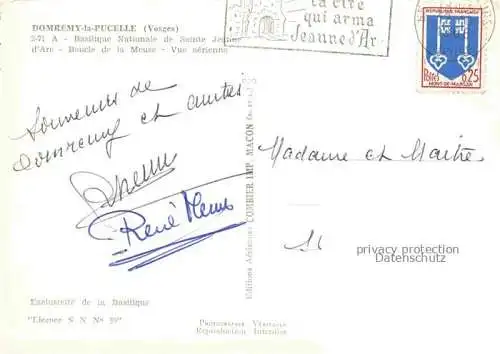 DOMREMY-la-PUCELLE (Vosges)
2-71 A - Basilique Nationale de Sainte Jeanne
d'Arc - Boucle de la Meuse - Vue aérienne
la cité
qui arma
Jeanne d'Arc
REPUBLIQUE FRANÇAISE
RF 0,25
MONT-DE-MARSAN
Souvenirs de
Domremy et amitiés
René
Madame et Maître
privacy protection
Editions Aériennes COMBIER IMP. MACON
Exclusivité de la Basilique
"Licence S N No 39"
PHOTOGRAPHIE VÉRITABLE
Reproduction Interdite